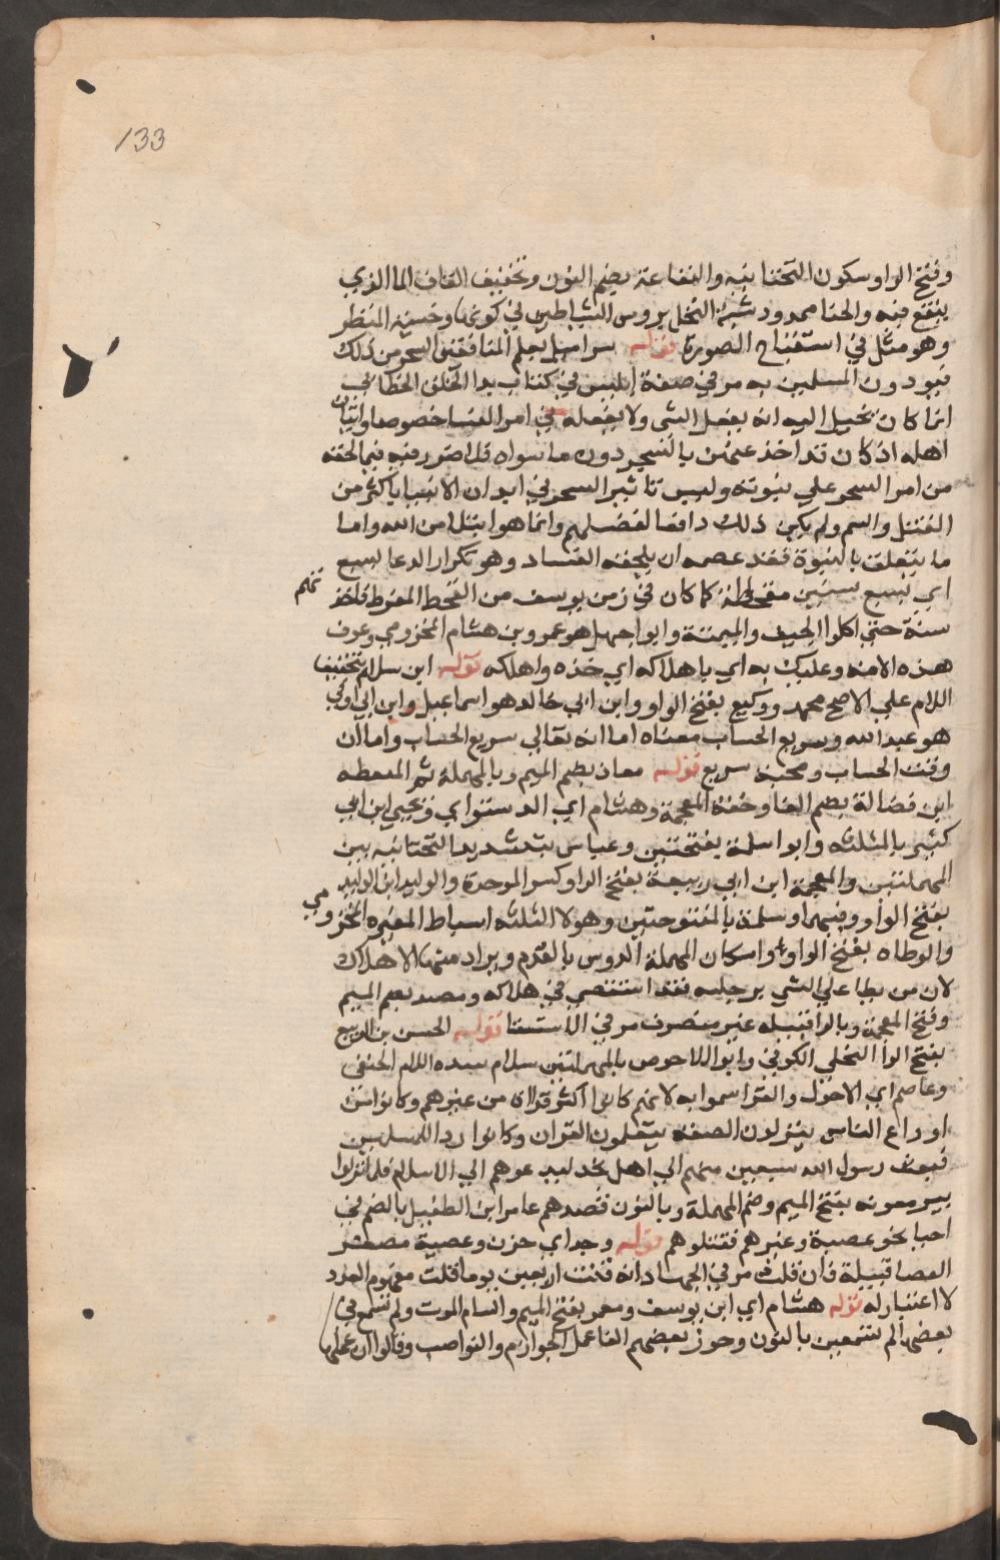 133
وفتح الواو وسكون التحتانيه والنقاعة بضم النون وتخفيف القاف الما الذي
ينقع فيه والحنا ممدود شبه النخل بروس الشياطين في كونها وحشية المنظر
وهو مثل في استقباح الصورة قوله سراميل يعلم المنافقين السحر من ذلك
فيودون المسلمين به مر في صفة إبليس في كتاب بدا الخلق الخطابي
انما كان يخيل اليه انه يفعل الشي ولا يفعله في امر النسا خصوصا واتيان
اهله اذ كان قد اخذ عنهن بالسحر دون ما سواه فلا ضرر فيه فيما لحقه
من امر السحر علي نبوته وليس تاثير السحر في ابدان الانبيا باكثر من
القتل والسم ولم يكن ذلك دافعا لفضلهم وانما هو ابتلا من الله واما
ما يتعلق بالنبوة فقد عصمه ان يلحقه الفساد وهو تكرار الدعا لسبع
اي بسبع سنين مقحطة كما كان في زمن يوسف من القحط المفرط فاخذتهم
سنة حتي اكلوا الجيف والميتة وابو اجهل هو عمرو بن هشام المخزومي وعرف
هذه الامه وعليك به اي باهلاكه اي خذه واهلكه قوله ابن سلام بتخفيف
اللام علي الاصح محمد ووكيع بفتح الواو وابن ابي خالد هو اسماعيل وابن ابي اوفي
هو عبد الله وسريع الحساب معناه اما انه تعالي سريع الحساب واما ان
وقت الحساب ومجيه سريع قوله معاذ بضم الميم وبالمهملة ثم المعطه
ابن فضالة بضم الفا وخفة المعجمة وهشام اي الدستواي ويحيي ابن ابي
كثير بالمثلثه وابو اسلمة بفتحتين وعياس بتشديد التحتانيه بين
المهملتين والمعجمة ابن ابي ربيعة بفتح الرا وكسر الموحدة والوليد ابن الوليد
بفتح الواو وفيهما وسلمة بالمفتوحتين وهولا الثلثه اسباط المغيره المخزومي
والوطاه بفتح الواو واسكان المهملة الدوس بالقدم ويراد منها الاهلاك
لان من يطا علي الشي برجليه فقد استقصي في هلاكه ومضر بضم الميم
وفتح المعجمة وبالرا قبيله غير منصرف مر في الاستسقا قوله الحسن بن الربيع
بفتح الرا البجلي الكوفي وابو الاحوص بالمهملتين سلام بشده اللام الحنفي
وعاصم اي الاحول والقرا سموا به لانهم كانوا اكثر قراة من غيرهم وكانوا من
اوراع الناس ينزلون الصفه يتعلمون القران وكانوا ردا للمسلمين
فبعث رسول الله سبعين منهم الي اهل نجد ليدعوهم الي الاسلام فلما نزلوا
بير معونه بفتح الميم وضم المهملة وبالنون قصدهم عامر ابن الطفيل بالضم في
احيا نحو عصية وغيرهم فقتلوهم قوله وجد اي حزن وعصية مصغر
العصا قبيلة فان قلت مر في الجهاد انه قنت اربعين يوما قلت مفهوم العدد
لا اعتبار له قوله هشام اي ابن يوسف ومعمر بفتح الميم والسام الموت ولم تسمعي
بعضها لم تسمعين بالنون وجوز بعضهم الغا عمل الجوازم والنواصب وقالوا ان عملها